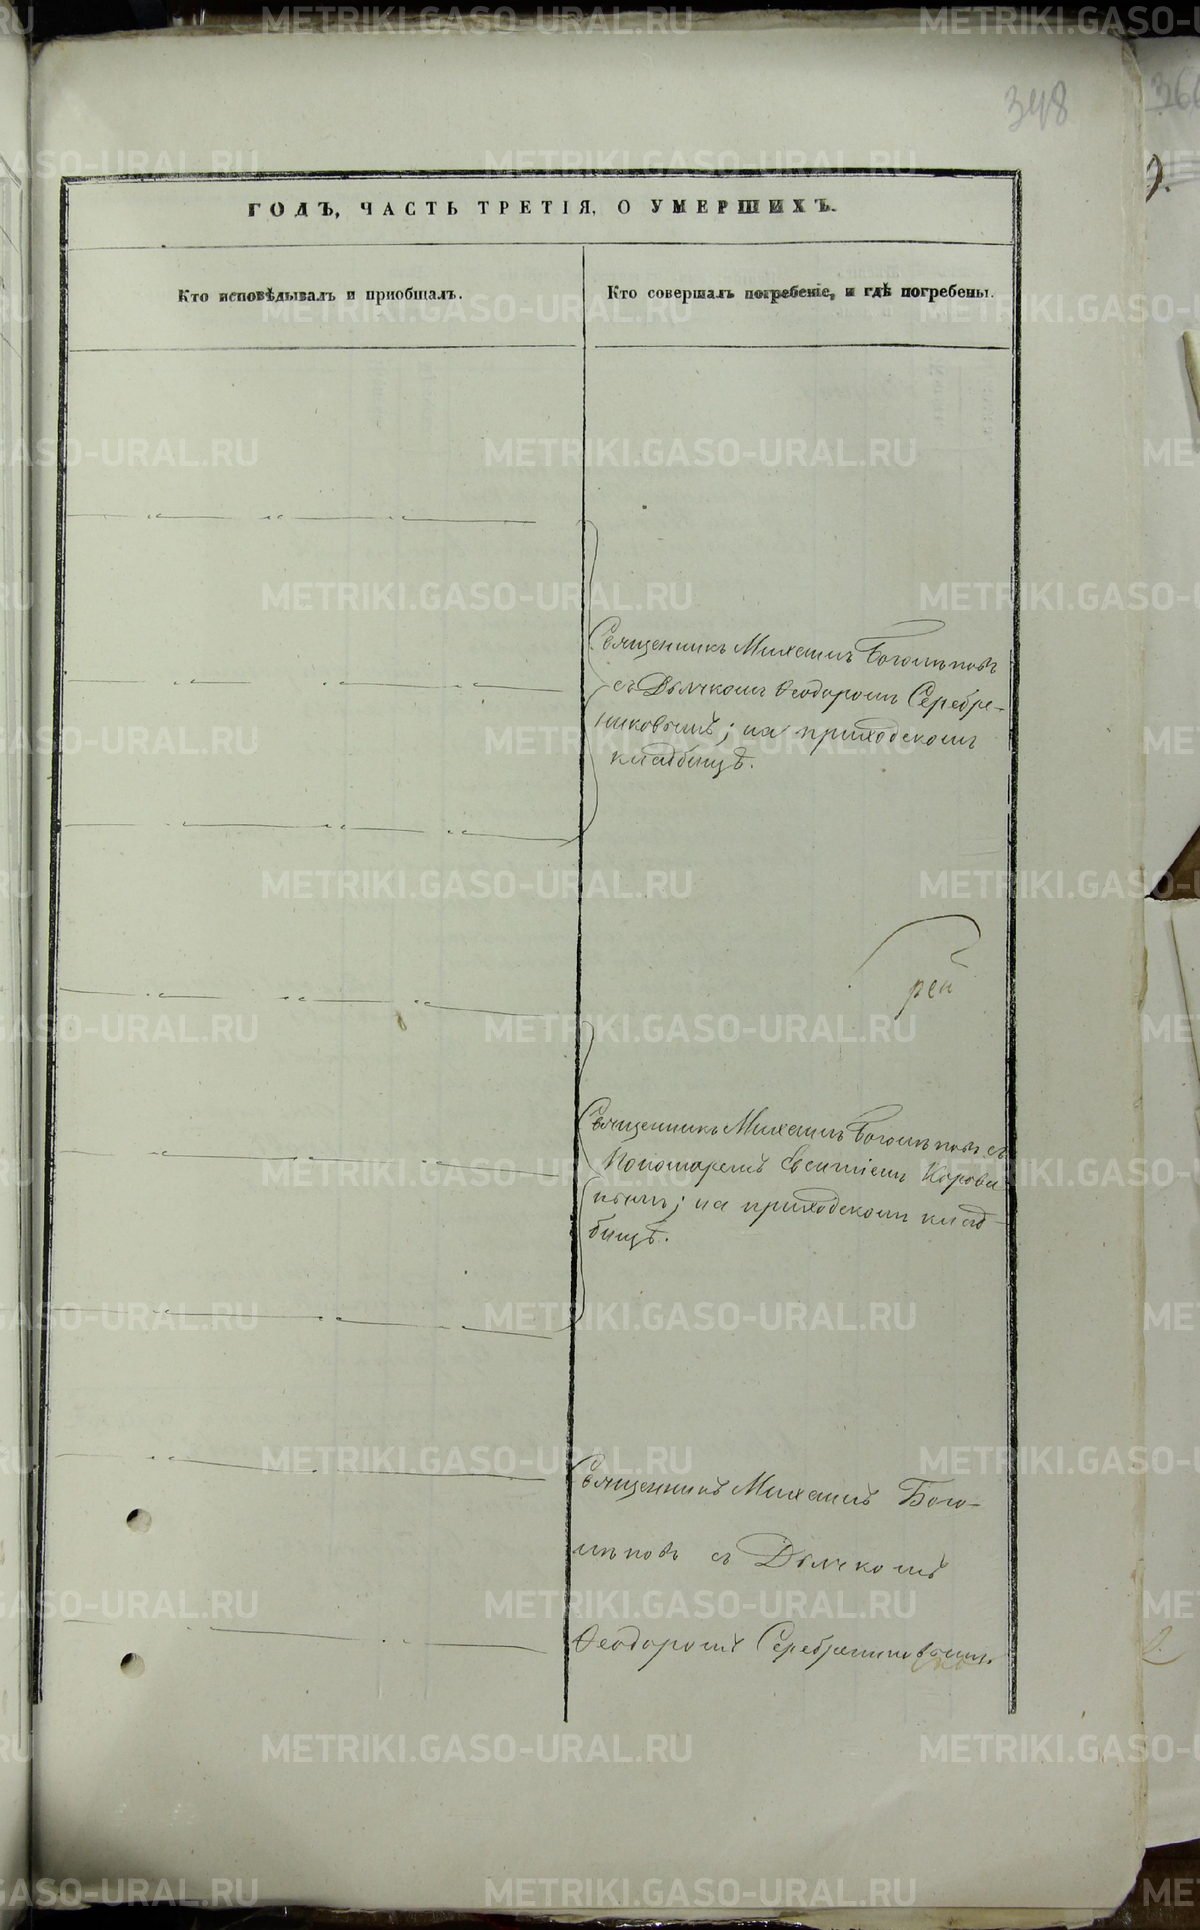 348
ГОДЪ, ЧАСТЬ ТРЕТІЯ, О УМЕРШИХЪ.
Кто исповѣдывалъ и приобщалъ.
Кто совершалъ погребеніе, и гдѣ погребены.
Священникъ Михаилъ Боголѣповъ
съ Дьячкомъ Ѳеодоромъ Серебре-
никовымъ; на приходскомъ
кладбищѣ.
Священникъ Михаилъ Боголѣповъ съ
Пономаремъ
нымъ; на приходскомъ клад-
бищѣ.
Священникъ Михаилъ Бого-
лѣповъ съ Дьячкомъ
Ѳеодоромъ Серебрениковымъ.
METRIKI.GASO-URAL.RU